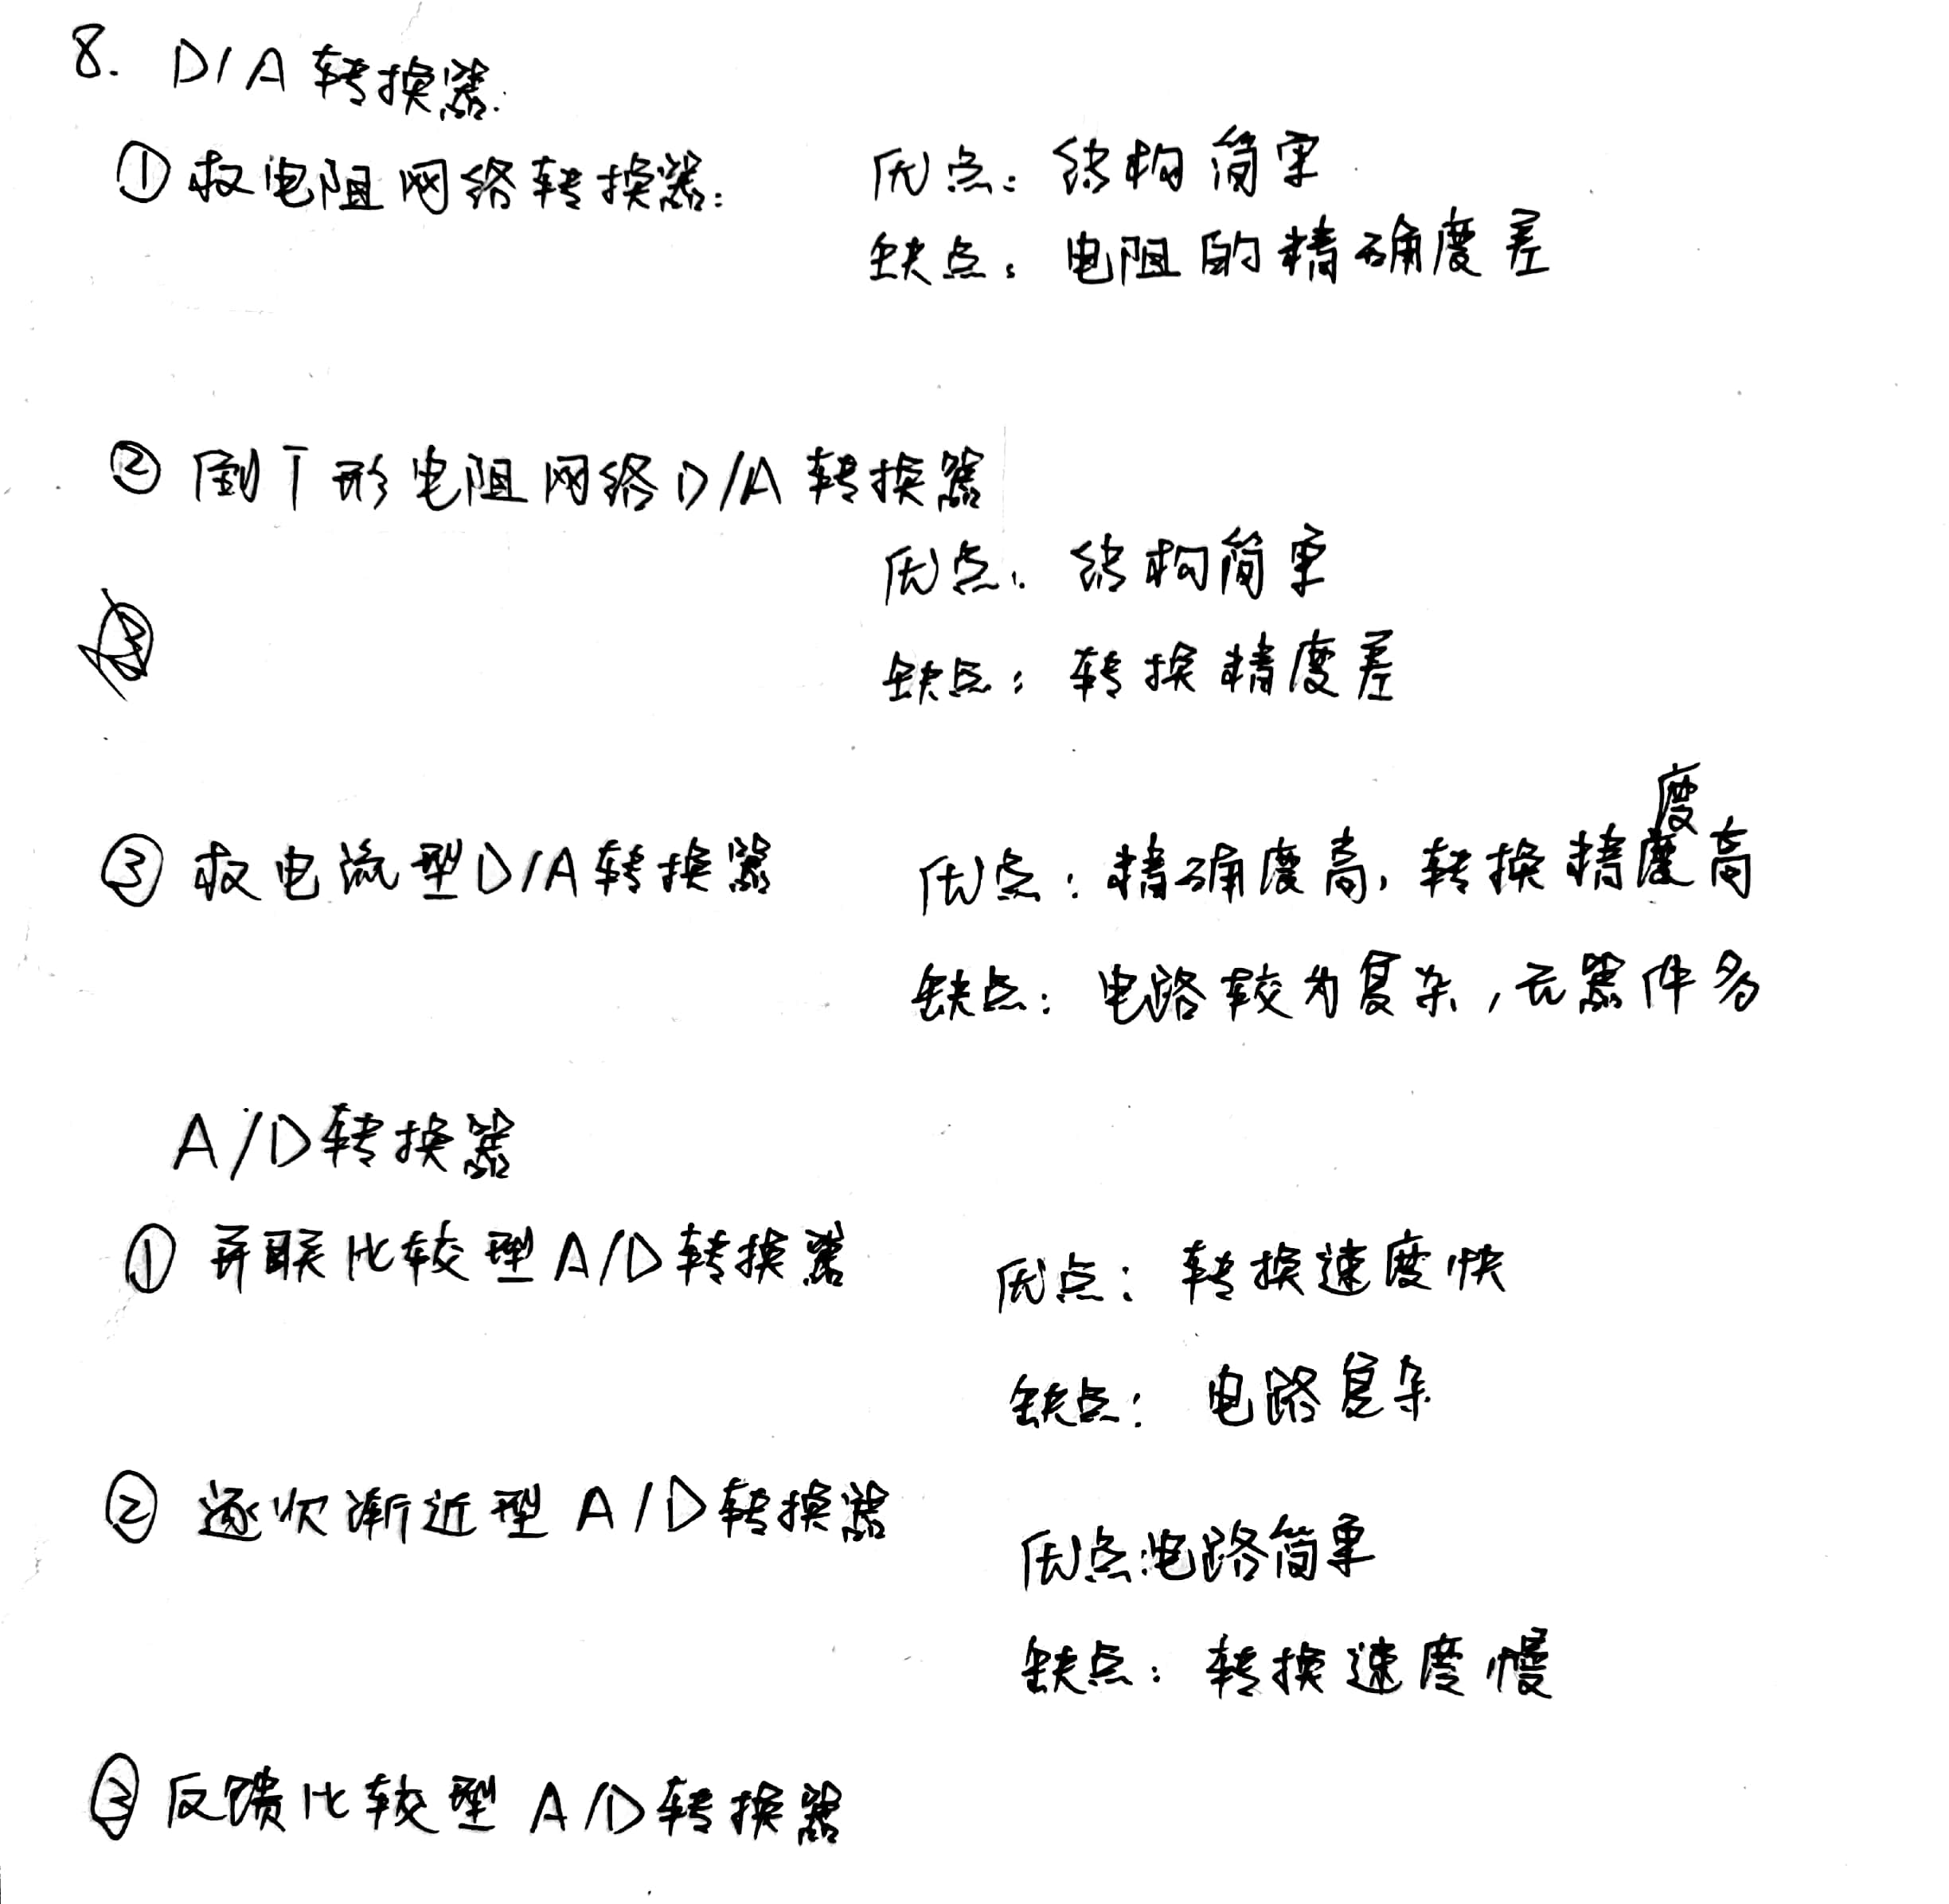 8. D/A 转换器.
① 权电阻网络转换器: 优点: 结构简单
缺点: 电阻的精确度差
② 倒T形电阻网络D/A转换器
优点: 结构简单
缺点: 转换精度差
度
③ 权电流型D/A转换器 优点: 精确度高, 转换精度高
缺点: 电路较为复杂, 元器件多
A/D转换器
① 并联比较型A/D转换器 优点: 转换速度快
缺点: 电路复杂
② 逐次渐近型A/D转换器
优点:电路简单
缺点: 转换速度慢
③ 反馈比较型A/D转换器